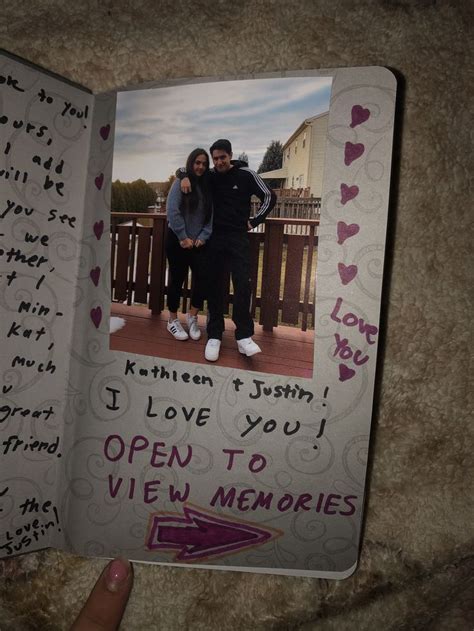 to you!
ours,
add
will be
you see
we
ther,
I
Min-
Kat,
Much
great
friend.
the
Love,
Justin!
Love
You
Kathleen + Justin!
I LOVE YOU!
OPEN TO
VIEW MEMORIES